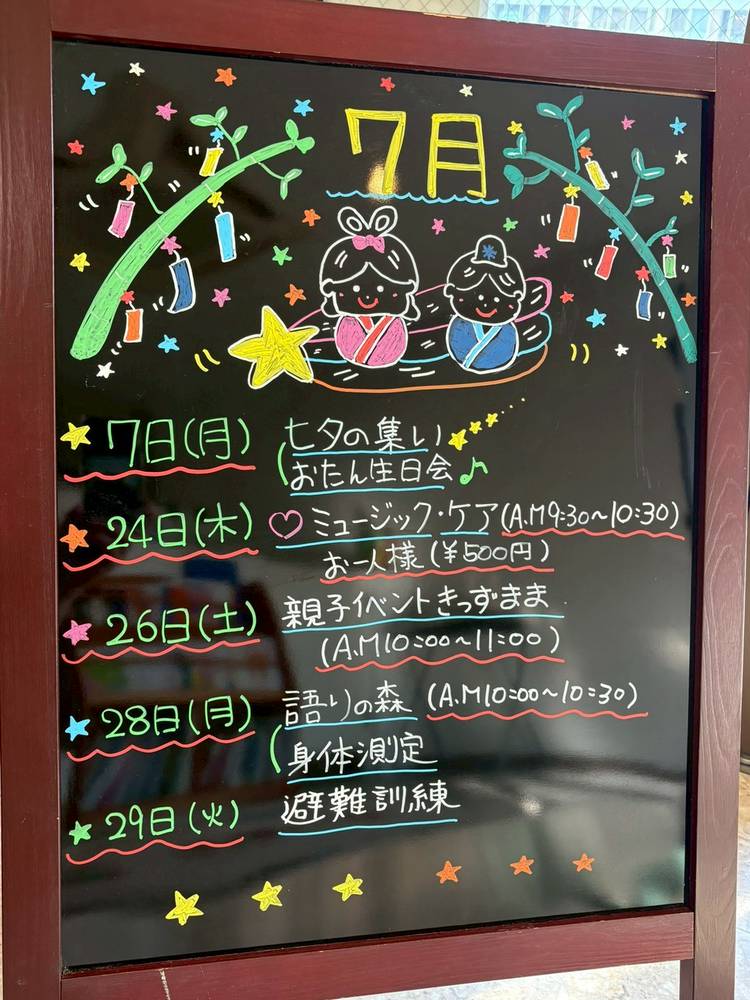 7月
7日(月) 七夕の集い
おたん生日会♪
24日(木) ♡ミュージック・ケア(A.M9:30~10:30)
お一人様(¥500円)
26日(土) 親子イベントきっずまま
(A.M10:00~11:00)
28日(月) 語りの森 (A.M10:00~10:30)
身体測定
29日(火) 避難訓練